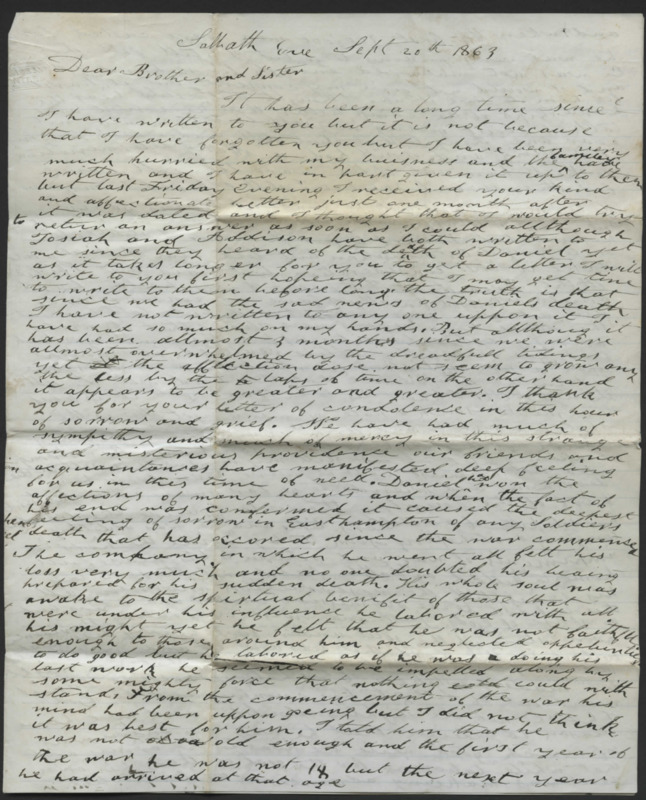 Sabbath Eve Sept 20th 1863
Dear Brother and Sister
It has been a long time since
I have written to you but it is not because
that I have forgotten you but I have been very
much hurried with my buisness and the
written and I have in part given it up to them
but last Friday Evening I received your kind
and affectionate letter just one moonth after
it was dated and I thought that I would try
to return an answer as soon as I could allthough
Josiah and Addison have both written to
me since they heard of the death of Daniel yet
as it takes longer for you to get a letter I will
write to you first hopeing that I may get time
to write to them before long the truth is that
since we had the sad news of Daniels death
I have not written to any one uppon it I
have had so much on my hands. But allthoug it
has been allmost 3 months since we were
allmost overwhelmed by the dreadfull tidings
yet the affliction dose not seem to grow any
the less by the laps of time on the other hand
it appears to be greater and greater. I thank
you for your letter of condolence in this hour
of sorrow and grief. We have had much of
sympathy and much of mercy in this strange
and misterious providence our friends and
acquaintances have manifested deep feeling
for us in this time of need. Daniel had won the
affections of many hearts and when the fact of
his end was confermed it caused the deepest
feeling of sorrow in Easthampton of any Soldiers
death that has occored since the war commenced
The company in which he went all felt his
loss very much and no one doubted his being
prepared for his sudden death. His whole soul was
awake to the spirtual benefit of those that
were under his influence he labored with all
his might yet he felt that he was not faithful
enough to those around him and neglected oppertunitys
to do good but he labored as if he was doing his
last work he seemed to be impelled along by
some mighty force that nothing could with
stand. From the commencement of the war his
mind had been uppon going but I did not think
it was best for him. I told him that he
was not old enough and the first year of
the war he was not 18 but the next year
he had arrived at that age